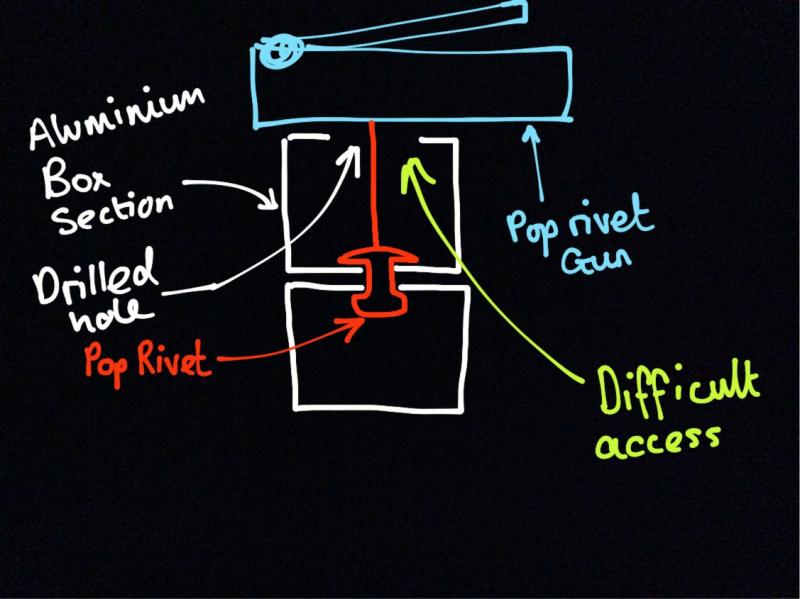 Aluminium
Box
Section
Drilled
hole
Pop Rivet
Pop rivet
Gun
Difficult
access